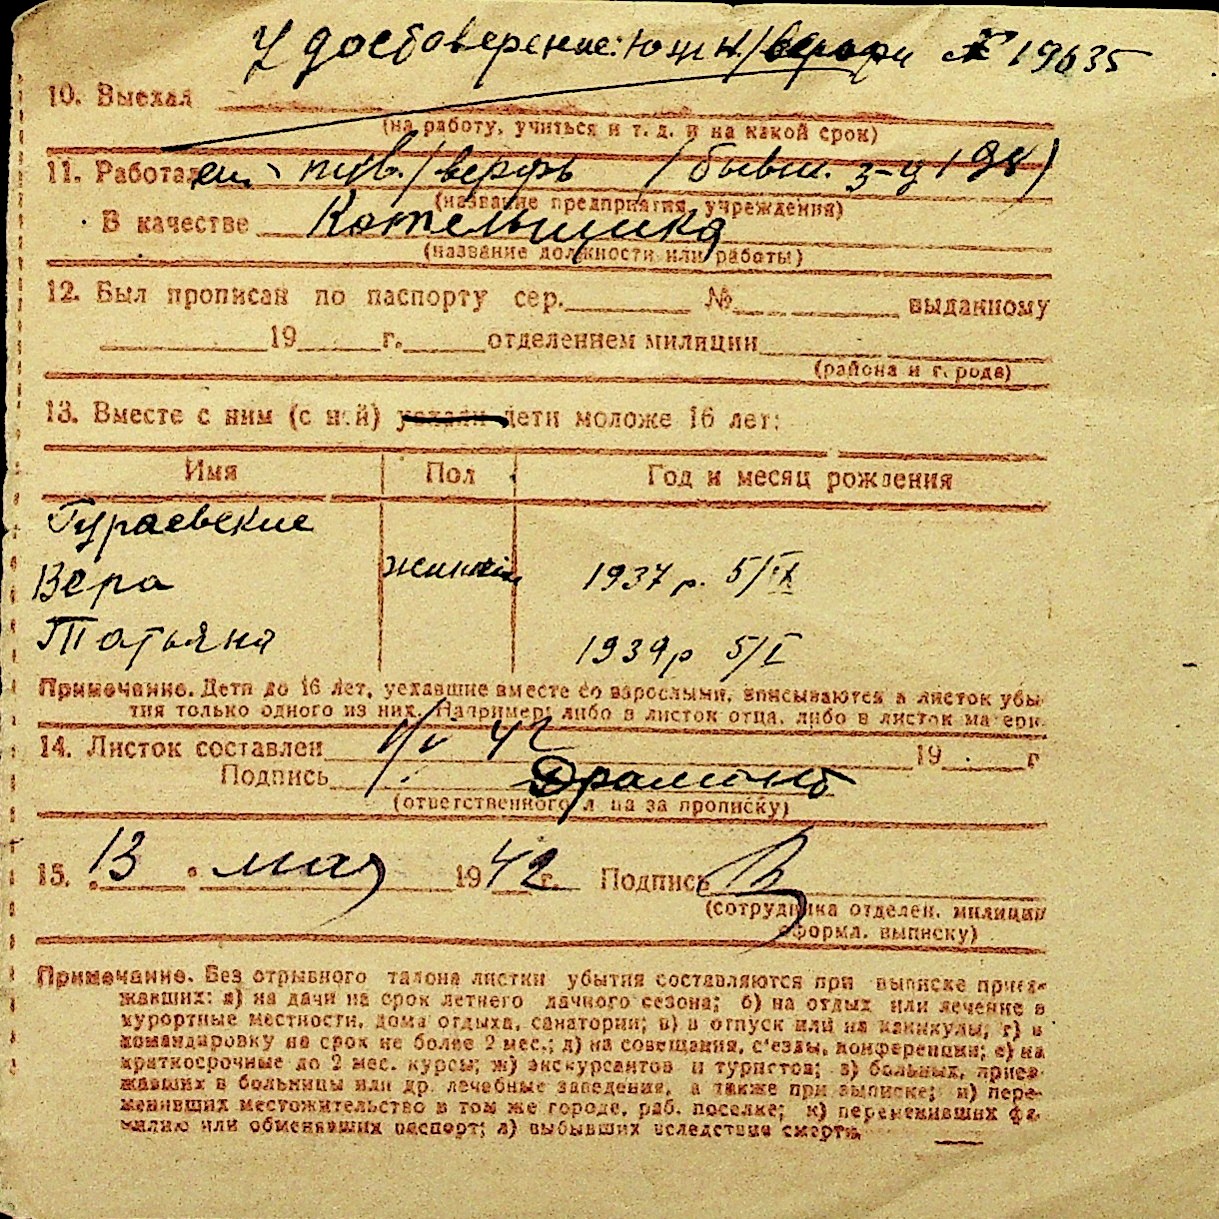 Удостоверение: Ющ н/верфи № 19635
10. Выехал
(на работу, учиться и т. д. и на какой срок)
11. Работал н/верфь / бывш. з-д 198)
(название предприятия, учреждения)
В качестве Котельщика
(название должности или работы)
12. Был прописан по паспорту сер. № выданному
19 г. отделением милиции
(района и города)
13. Вместе с ним (с ней) уехали дети моложе 16 лет:
Имя Пол Год и месяц рождения
Гураевские
Вера женский 1937 р. 5/IX
Татьяна 1939 р 5/I
Примечание. Дети до 16 лет, уехавшие вместе со взрослыми, вписываются в листок убы-
тия только одного из них. Например: либо в листок отца, либо в листок матери.
14. Листок составлен 42 19 г
Подпись
(ответственного лица за прописку)
15. 13 мая 1942 г. Подпись
(сотрудника отделен. милиции
оформл. выписку)
Примечание. Без отрывного талона листки убытия составляются при выписке приез-
жавших: а) на дачи на срок летнего дачного сезона; б) на отдых или лечение в
курортные местности, дома отдыха, санатории; в) в отпуск или на каникулы; г) в
командировку на срок не более 2 мес.; д) на совещания, с'езды, конференции; е) на
краткосрочные до 2 мес. курсы; ж) экскурсантов и туристов; з) больных, приез-
жавших в больницы или др. лечебные заведения, а также при выписке; и) пере-
менивших местожительство в том же городе, раб. поселке; к) переменивших фа-
милию или обменявших паспорт; л) выбывших вследствие смерти.